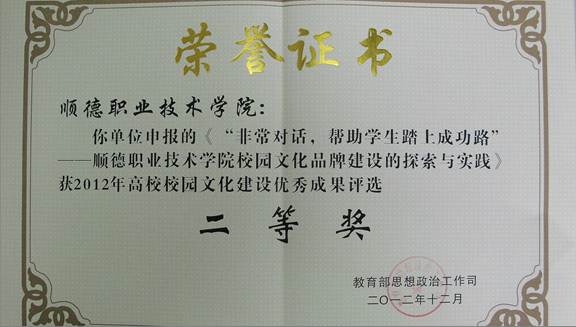 荣誉证书
顺德职业技术学院：
你单位申报的《“非常对话，帮助学生踏上成功路”
——顺德职业技术学院校园文化品牌建设的探索与实践》
获2012年高校校园文化建设优秀成果评选
二等奖
教育部思想政治工作司
二〇一二年十二月